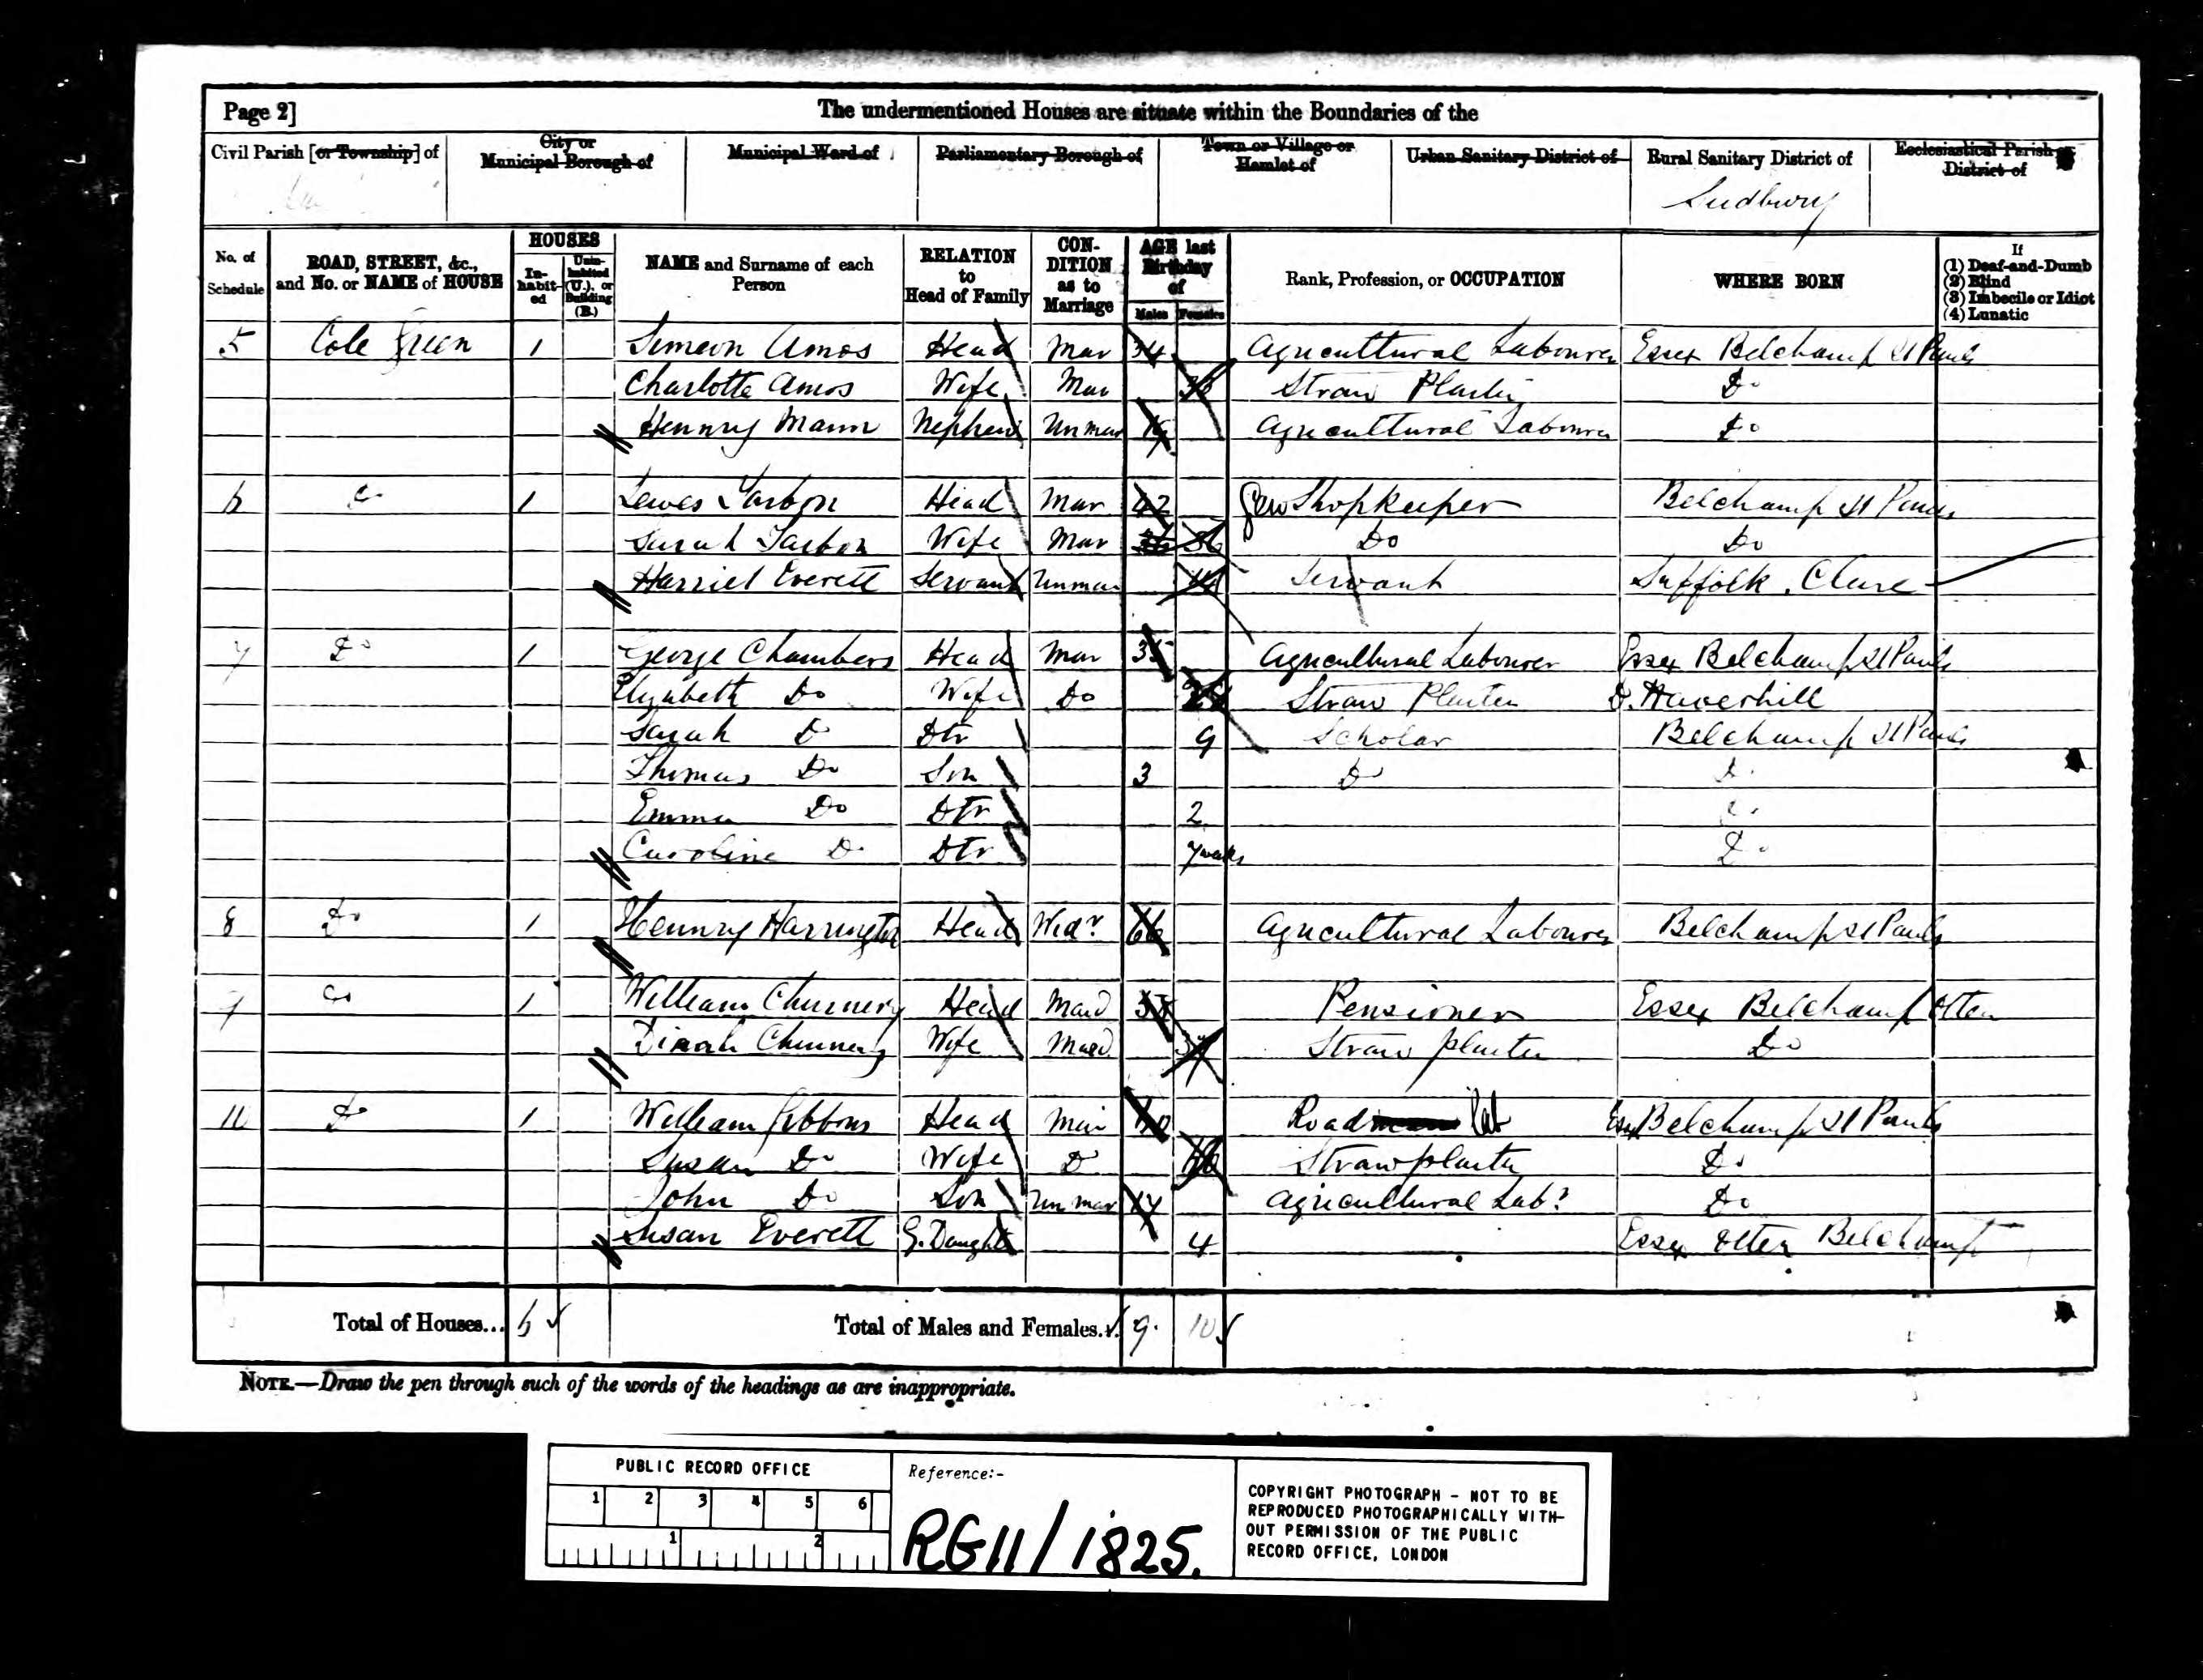 Page 2]
The undermentioned Houses are situate within the Boundaries of the
Civil Parish [or Township] of
City or Municipal Borough of
Municipal Ward of
Parliamentary Borough of
Town or Village or Hamlet of
Urban Sanitary District of
Rural Sanitary District of
Sudbury
Ecclesiastical Parish or District of
No. of Schedule
ROAD, STREET, &c., and No. or NAME of HOUSE
HOUSES
In-habit-ed
Unin-habited (U.), or Building (B.)
NAME and Surname of each Person
RELATION to Head of Family
CON-DITION as to Marriage
AGE last Birthday of
Males Females
Rank, Profession, or OCCUPATION
WHERE BORN
If
(1) Deaf-and-Dumb
(2) Blind
(3) Imbecile or Idiot
(4) Lunatic
5 Cole Green 1 Simeon Amos Head Mar 34 Agricultural Labourer Essex Belchamp St Pauls
Charlotte Amos Wife Mar Straw Plaiter Do
Hennry Mann Nephew Unmar 19 Agricultural Labourer Do
6 Do 1 Lewes Head Mar 42 Gen Shopkeeper Belchamp St Pauls
Sarah Wife Mar 36 Do Do
Harriet Everett Servant Unmar Servant Suffolk. Clare
7 Do 1 George Chambers Head Mar 35 Agricultural Labourer Essex Belchamp St Pauls
Elizabeth Do Wife Do Straw Plaiter D. Haverhill
Sarah D Dtr 9 Scholar Belchamp St Pauls
Thomas Do Son 3 Do Do
Emma Do Dtr 2 Do
Caroline Do Dtr 7 weeks Do
8 Do 1 Hennry Harrington Head Widr 66 Agricultural Labourer Belchamp St Pauls
9 Do 1 William Chinnery Head Mard Pensioner Essex Belchamp Otten
Dinah Chinnery Wife Mard 37 Straw plaiter Do
10 Do 1 William Gibbons Head Mar Road Lab Esx Belchamp St Pauls
Susan Do Wife D 46 Straw plaiter Do
John Do Son Unmar 17 Agricultural Labr Do
Susan Everett G. Daught 4 Essex Otten Belchamp
Total of Houses... 6
Total of Males and Females.. 9 10
NOTE.—Draw the pen through such of the words of the headings as are inappropriate.
PUBLIC RECORD OFFICE
1 2 3 4 5 6
1 2
Reference:-
RG11/1825.
COPYRIGHT PHOTOGRAPH - NOT TO BE
REPRODUCED PHOTOGRAPHICALLY WITH-
OUT PERMISSION OF THE PUBLIC
RECORD OFFICE, LONDON